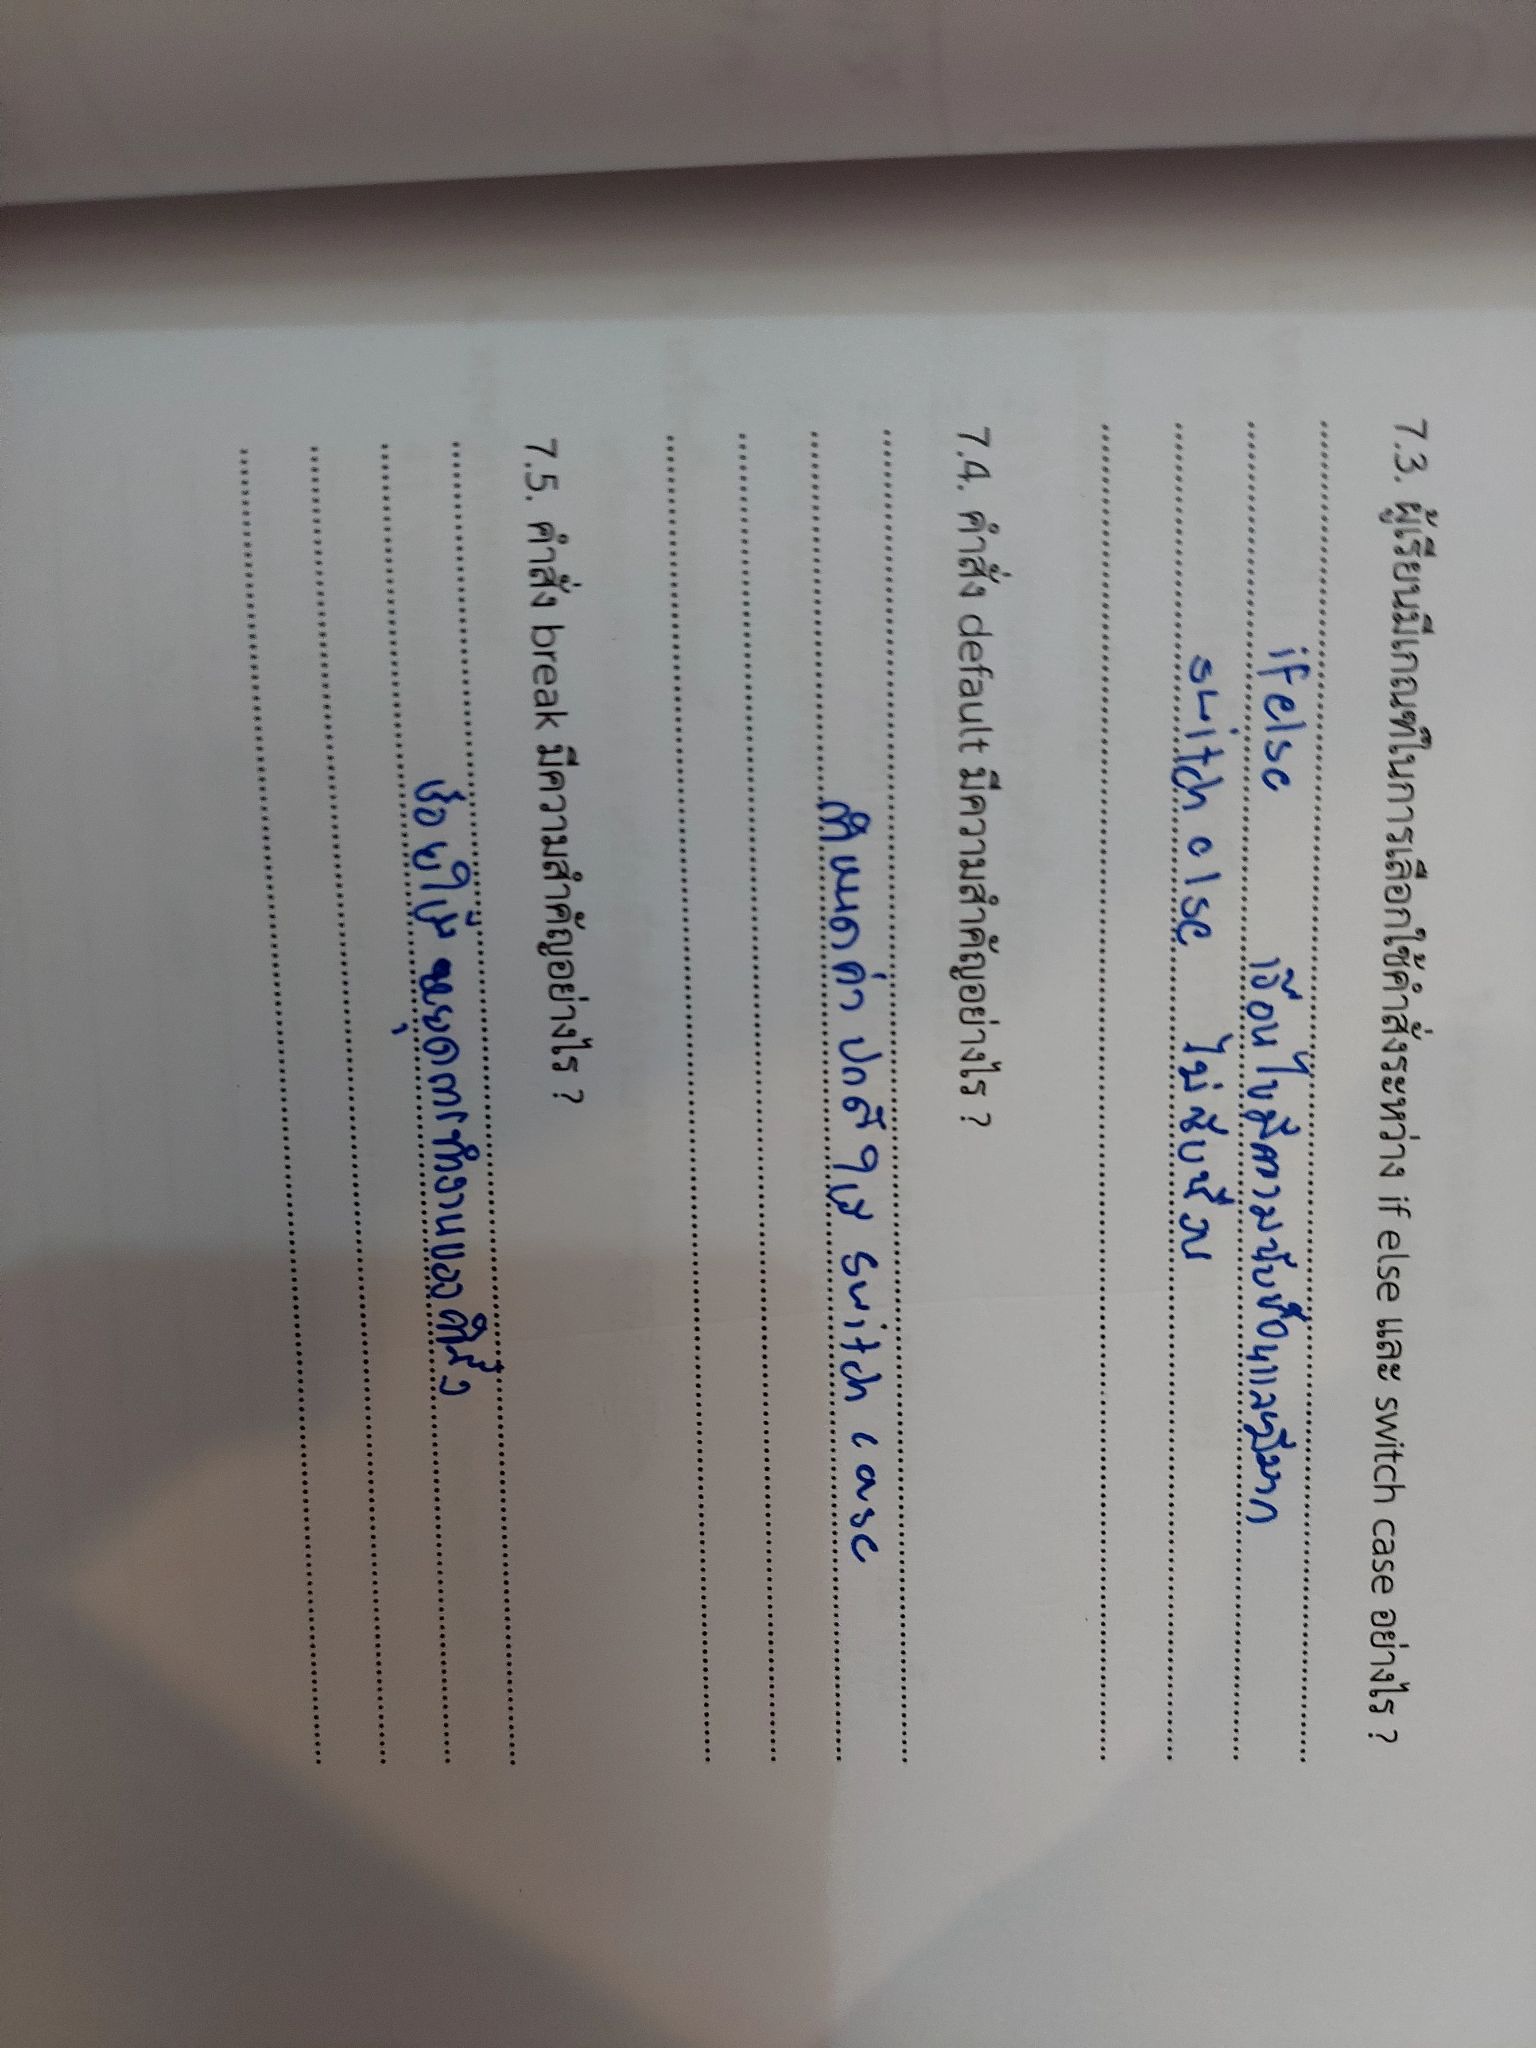 7.3. ผู้เรียนมีเกณฑ์ในการเลือกใช้คำสั่งระหว่าง if else และ switch case อย่างไร ?
if else เงื่อนไขมีความซับซ้อนและมีมาก
switch else ไม่ซับซ้อน
7.4. คำสั่ง default มีความสำคัญอย่างไร ?
กำหนดค่า ปกติ ใน switch case
7.5. คำสั่ง break มีความสำคัญอย่างไร ?
ช่วยให้ หยุดการทำงานของ